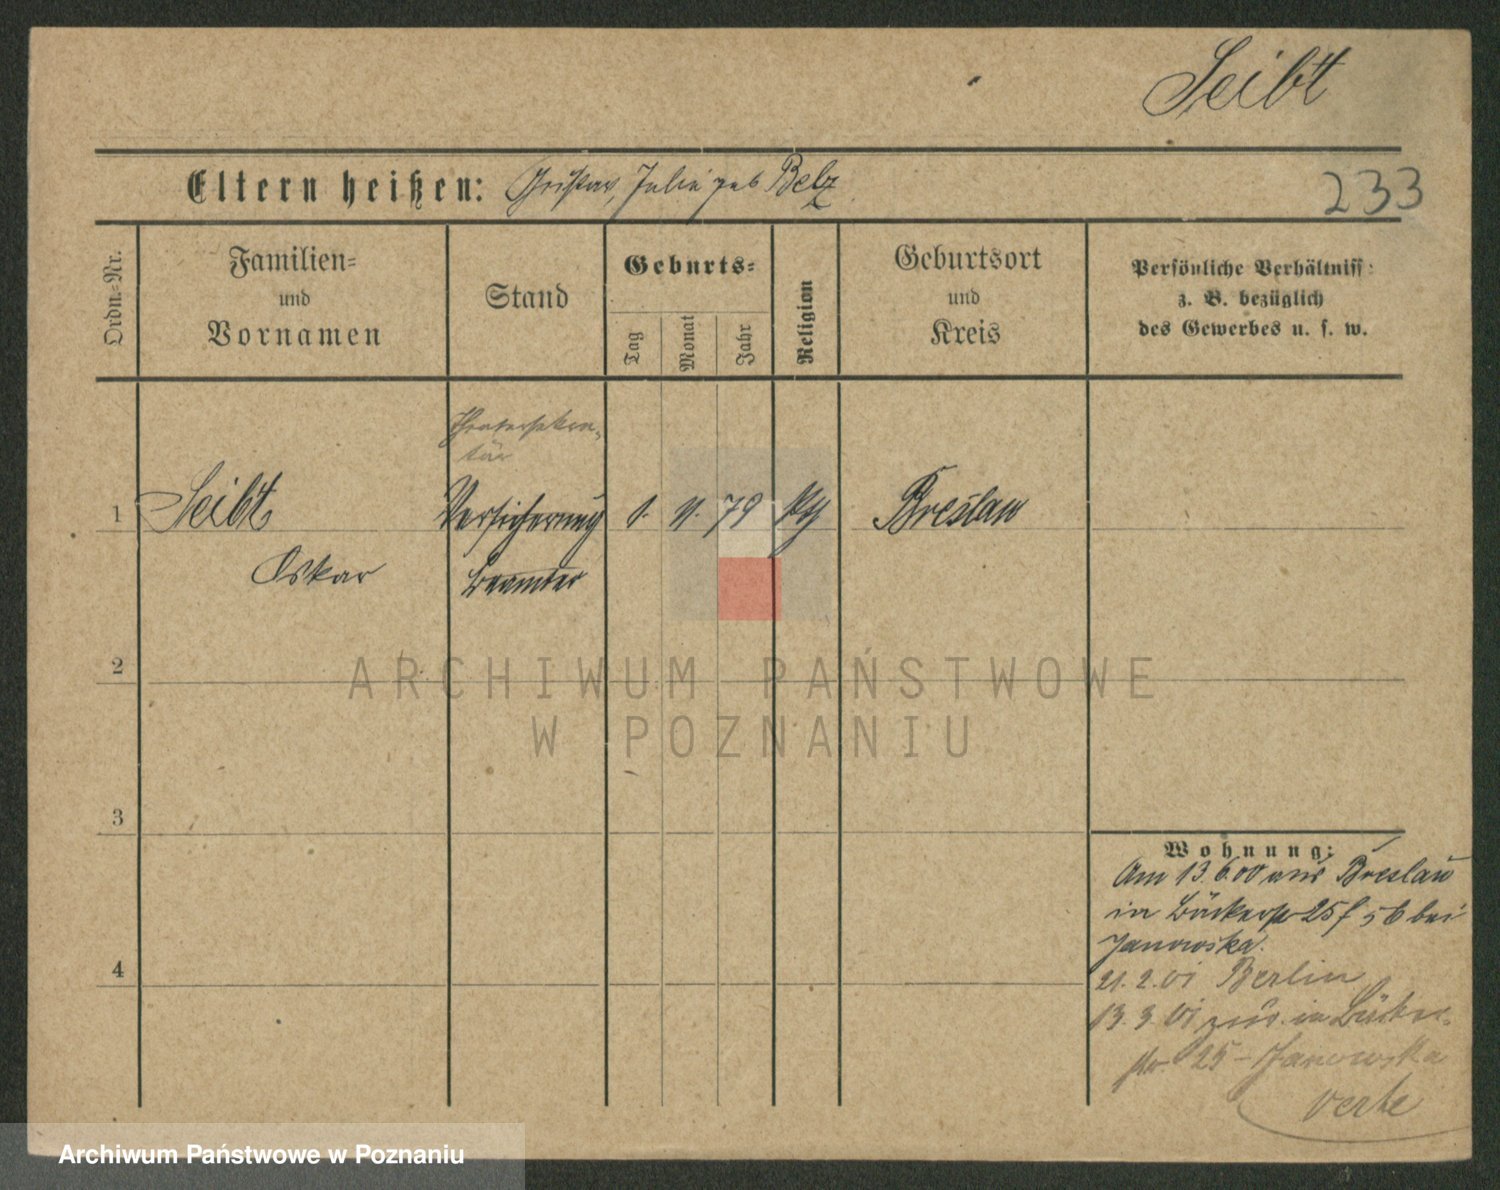 Seibt
Eltern heißen: Gustav, Julie geb Belz
233
Ordn.-Nr.
Familien-
und
Vornamen
Stand
Geburts-
Tag
Monat
Jahr
Religion
Geburtsort
und
Kreis
Persönliche Verhältniss
z. B. bezüglich
des Gewerbes u. s. w.
Theatersekre-
tär
1 Seibt Versicherung 1. 11. 79 Breslau
Oskar Beamter
2
3
4
Wohnung:
Am 13.6.00 aus Breslau
in Bäckerstr 25 bei
Janowska.
21.2.01 Berlin
13.3.01 zur. in Bäcker-
str. 25 - Janowska
verte
ARCHIWUM PAŃSTWOWE
W POZNANIU
Archiwum Państwowe w Poznaniu